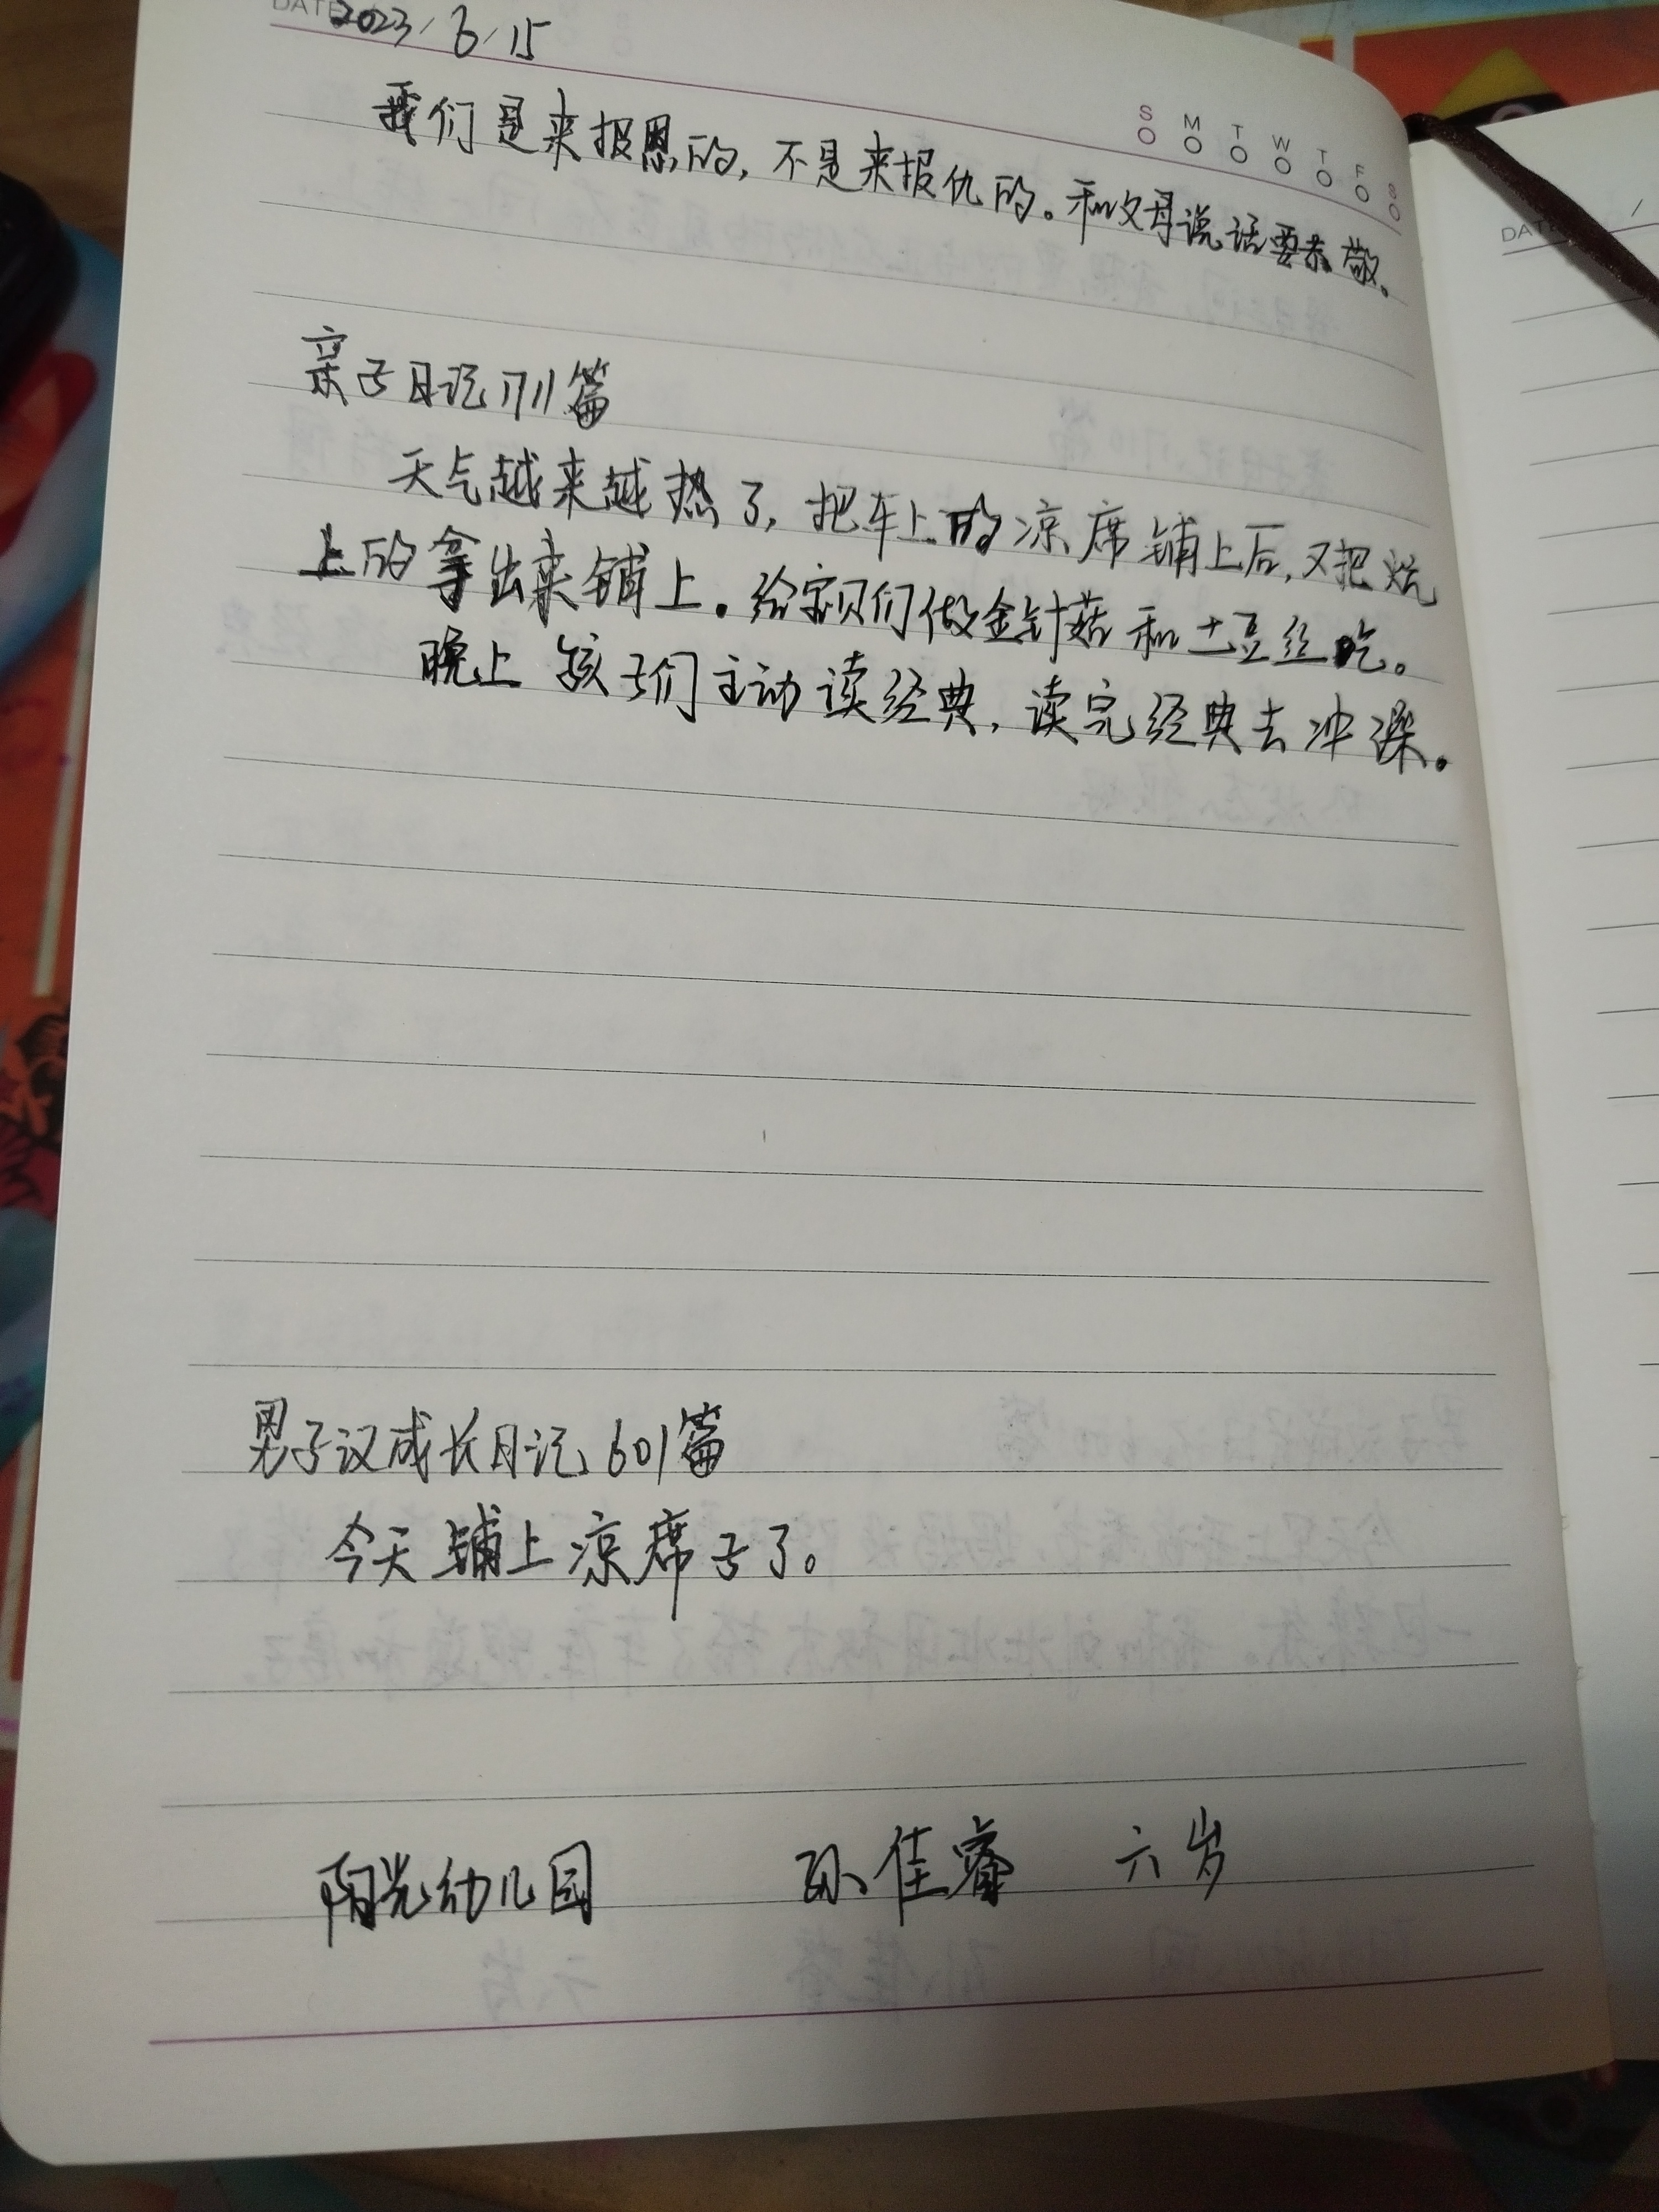 DATE 2023/6/15
S M T W T F S
我们是来报恩的，不是来报仇的。和父母说话要恭敬。
亲子日记1711篇
天气越来越热了，把车上的凉席铺上后，又把炕
上的拿出来铺上。给宝贝们做金针菇和土豆丝吃。
晚上孩子们主动读经典，读完经典去冲澡。
男子汉成长日记601篇
今天铺上凉席子了。
阳光幼儿园 孙佳睿 六岁
DATE /